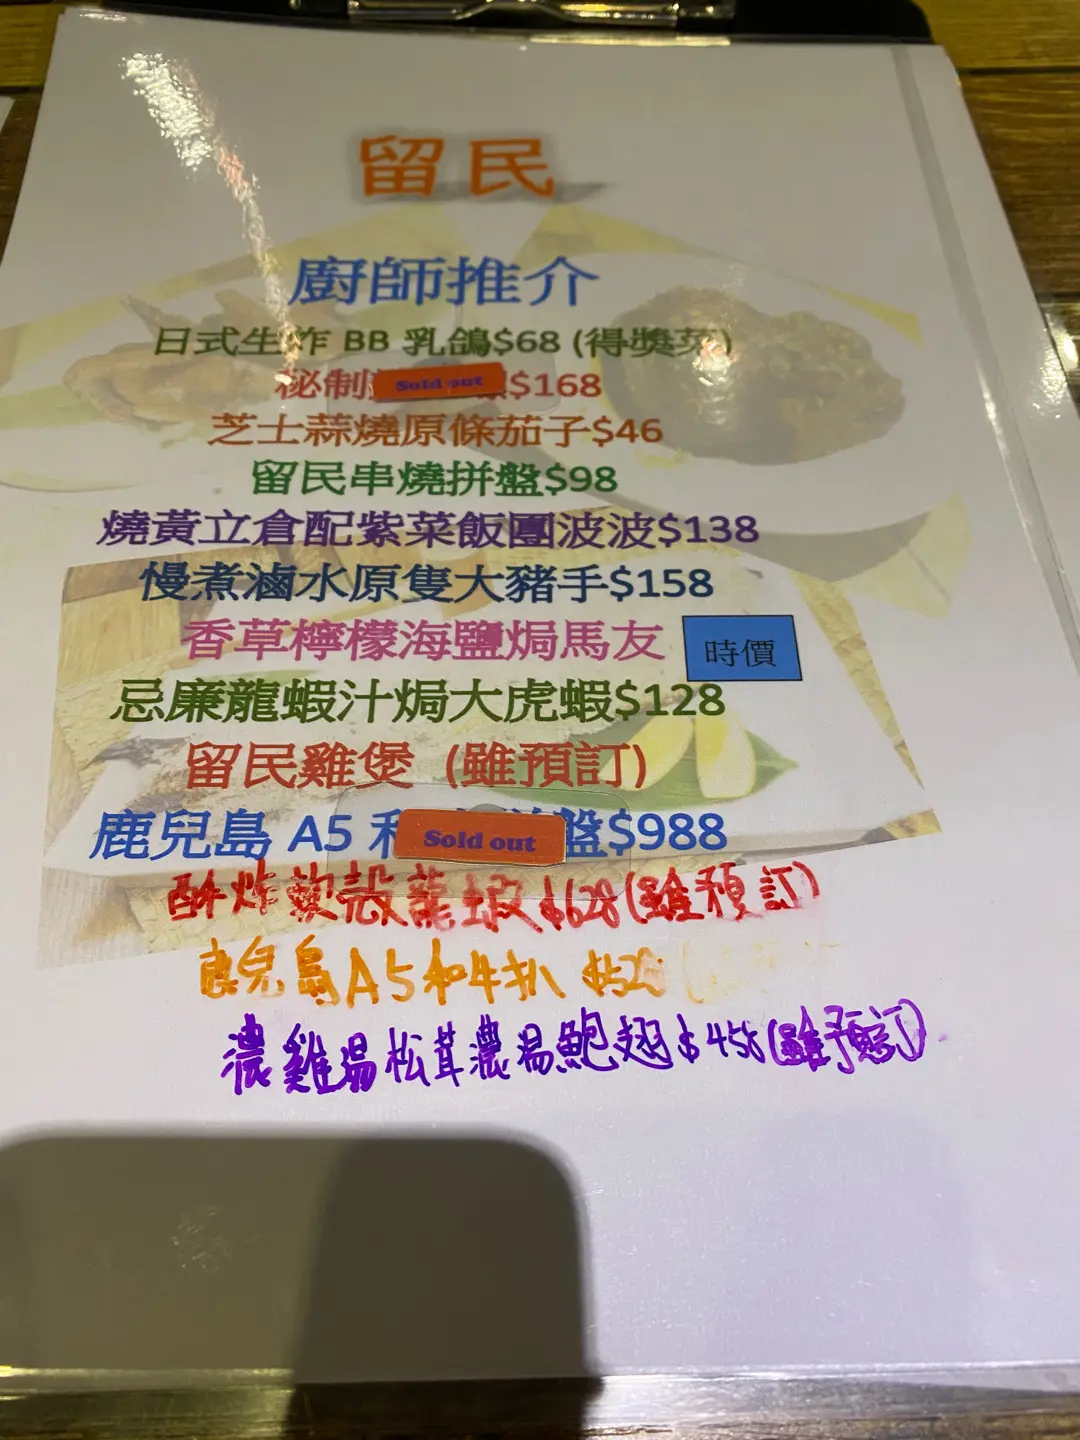 留民
廚師推介
日式生炸 BB 乳鴿$68 (得獎菜)
秘制 Sold out $168
芝士蒜燒原條茄子$46
留民串燒拼盤$98
燒黃立倉配紫菜飯團波波$138
慢煮滷水原隻大豬手$158
香草檸檬海鹽焗馬友 時價
忌廉龍蝦汁焗大虎蝦$128
留民雞煲 (雖預訂)
鹿兒島 A5 Sold out 盤$988
酥炸軟殼龍蝦$628(雖預訂)
鹿兒島A5和牛扒 $52
濃雞湯松茸濃湯鮑翅$458(雖預訂)